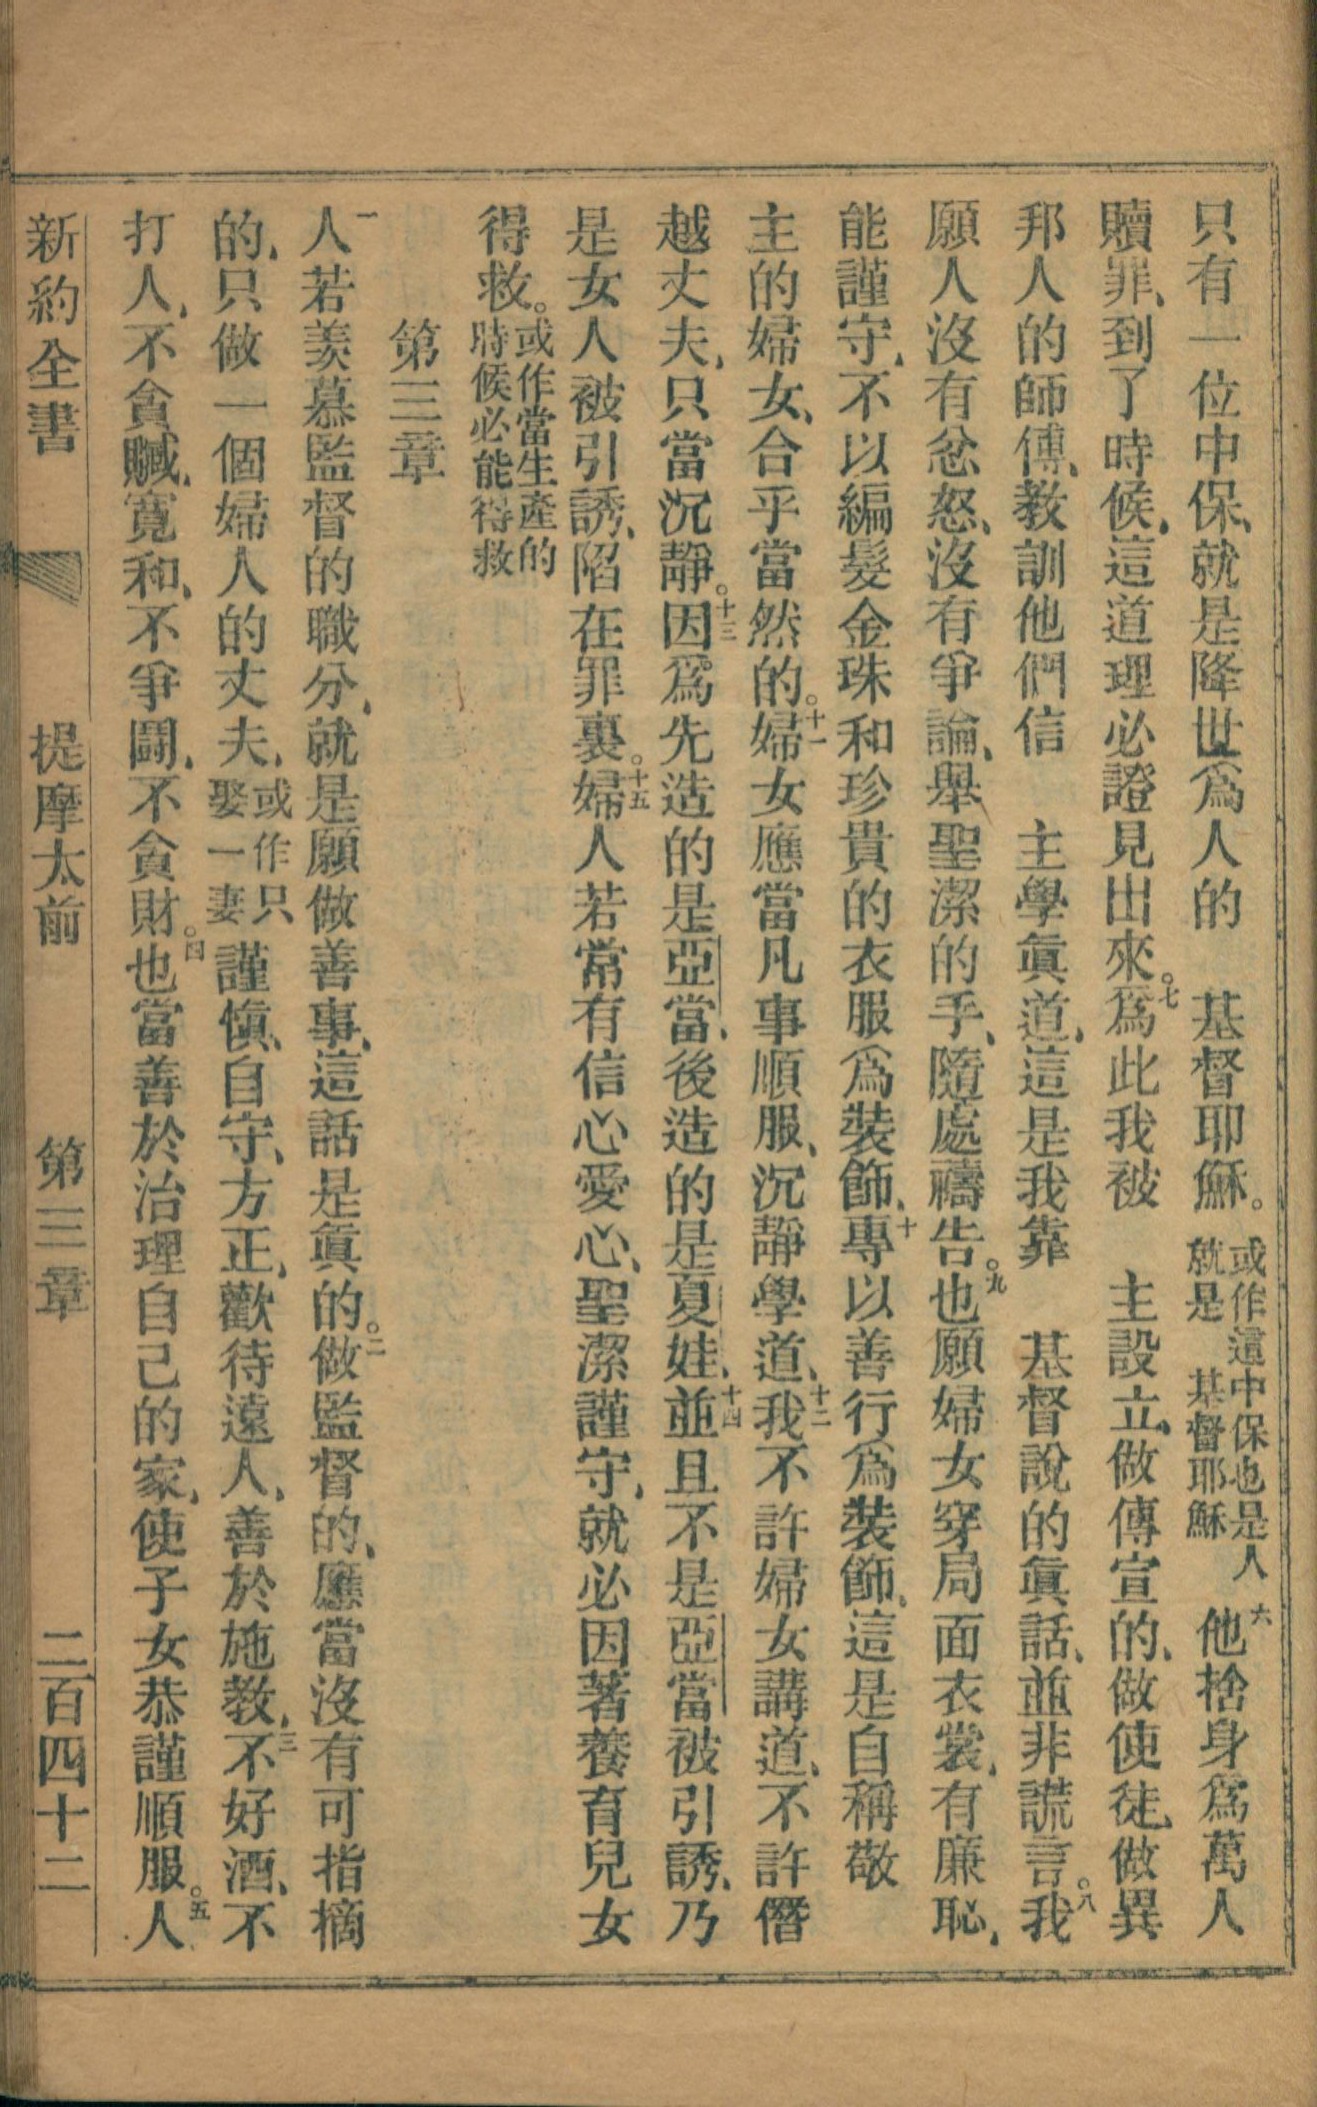 只有一位中保、就是降世爲人的　基督耶穌。或作這中保也是人就是　基督耶穌六他捨身爲萬人
贖罪、到了時候、這道理必證見出來。七爲此我被　主設立、做傳宣的、做使徒、做異
邦人的師傅、教訓他們信　主學眞道、這是我靠　基督說的眞話、並非謊言。八我
願人沒有忿怒、沒有爭論、舉聖潔的手、隨處禱告。九也願婦女穿局面衣裳、有廉恥、
能謹守、不以編髮金珠和珍貴的衣服爲裝飾、十專以善行爲裝飾、這是自稱敬
主的婦女、合乎當然的。十一婦女應當凡事順服、沉靜學道、十二我不許婦女講道、不許僭
越丈夫、只當沉靜。十三因爲先造的是亞當、後造的是夏娃、十四並且不是亞當被引誘、乃
是女人被引誘、陷在罪裏。十五婦人若常有信心愛心、聖潔謹守、就必因著養育兒女
得救。或作當生產的時候必能得救
第三章
一人若羨慕監督的職分、就是願做善事、這話是眞的。二做監督的、應當沒有可指摘
的、只做一個婦人的丈夫、或作只娶一妻謹愼、自守、方正、歡待遠人、善於施教、三不好酒、不
打人、不貪贓、寬和、不爭鬪、不貪財。四也當善於治理自己的家、使子女恭謹順服。五人
新約全書　提摩太前　第三章　二百四十二